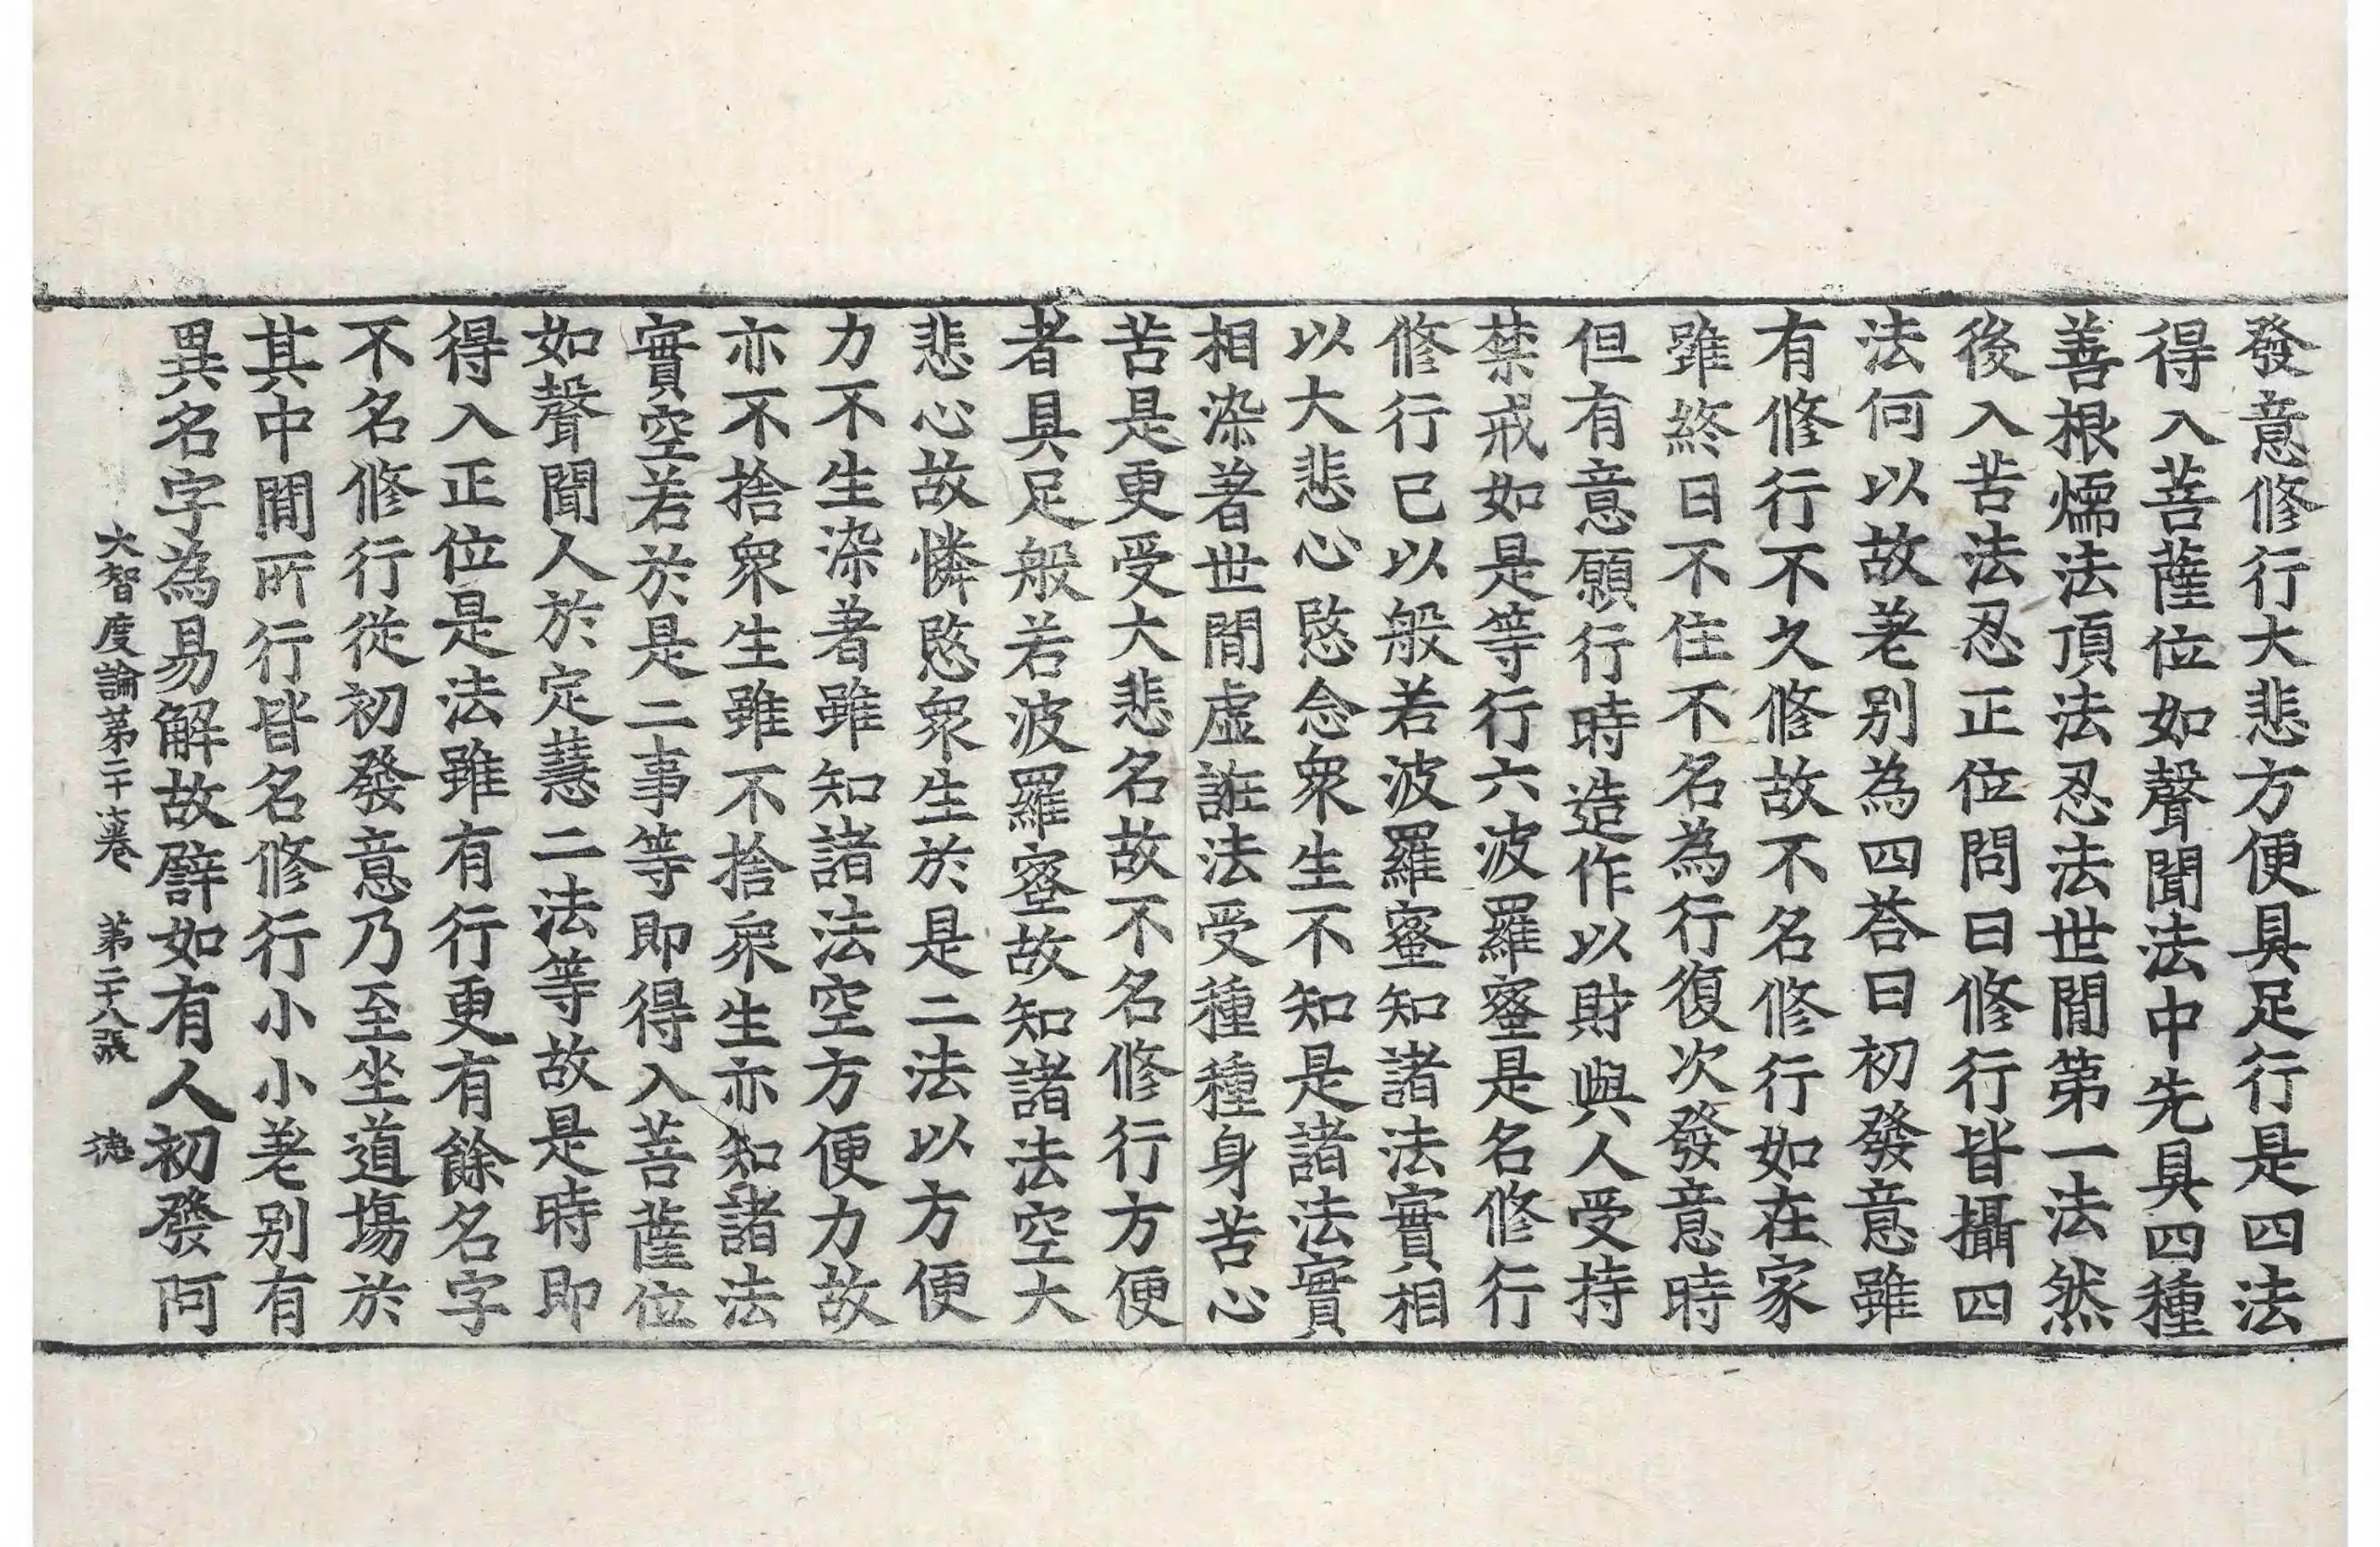 發意修行大悲方便具足行是四法
得入菩薩位如聲聞法中先具四種
善根燸法頂法忍法世閒第一法然
後入苦法忍正位問曰修行皆攝四
法何以故差別為四荅曰初發意雖
有修行不久修故不名修行如在家
雖終日不住不名為行復次發意時
但有意願行時造作以財與人受持
禁戒如是等行六波羅蜜是名修行
修行已以般若波羅蜜知諸法實相
以大悲心愍念衆生不知是諸法實
相染著世閒虛誑法受種種身苦心
苦是更受大悲名故不名修行方便
者具足般若波羅蜜故知諸法空大
悲心故憐愍衆生於是二法以方便
力不生染著雖知諸法空方便力故
亦不捨衆生雖不捨衆生亦知諸法
實空若於是二事等即得入菩薩位
如聲聞人於定慧二法等故是時即
得入正位是法雖有行更有餘名字
不名修行從初發意乃至坐道場於
其中閒所行皆名修行小小差別有
異名字為易解故譬如有人初發阿
大智度論第二十七卷 第二十八張 德